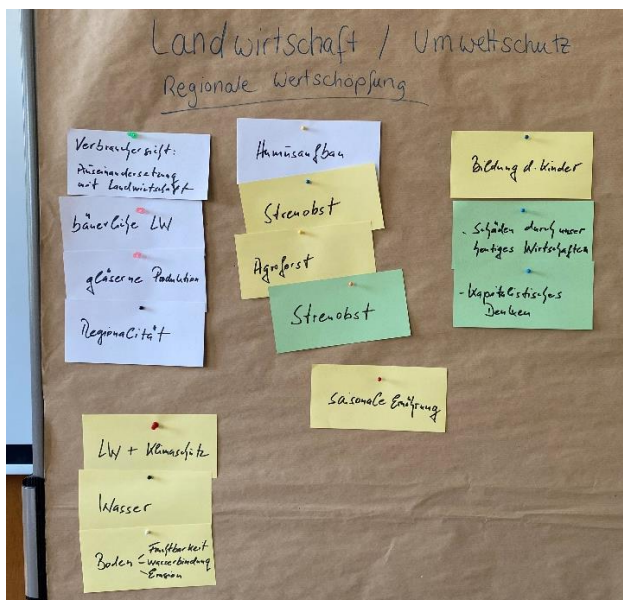 Landwirtschaft / Umweltschutz
Regionale Wertschöpfung
Verbrauchersicht:
Auseinandersetzung
mit Landwirtschaft
bäuerliche LW
gläserne Produktion
Regionalität
Humusaufbau
Streuobst
Agroforst
Streuobst
Bildung d. Kinder
- Schäden durch unser
heutiges Wirtschaften
- Kapitalistisches
Denken
saisonale Ernährung
LW + Klimaschutz
Wasser
Fruchtbarkeit
Boden - Wasserbindung
Erosion